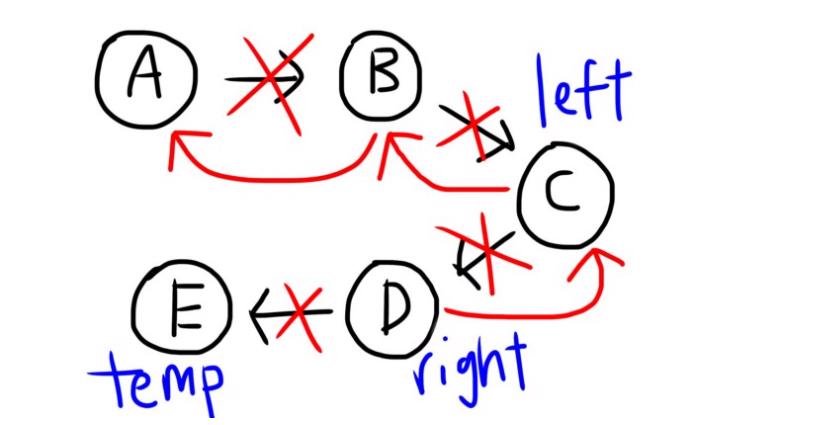 A
B
left
C
E
D
temp
right